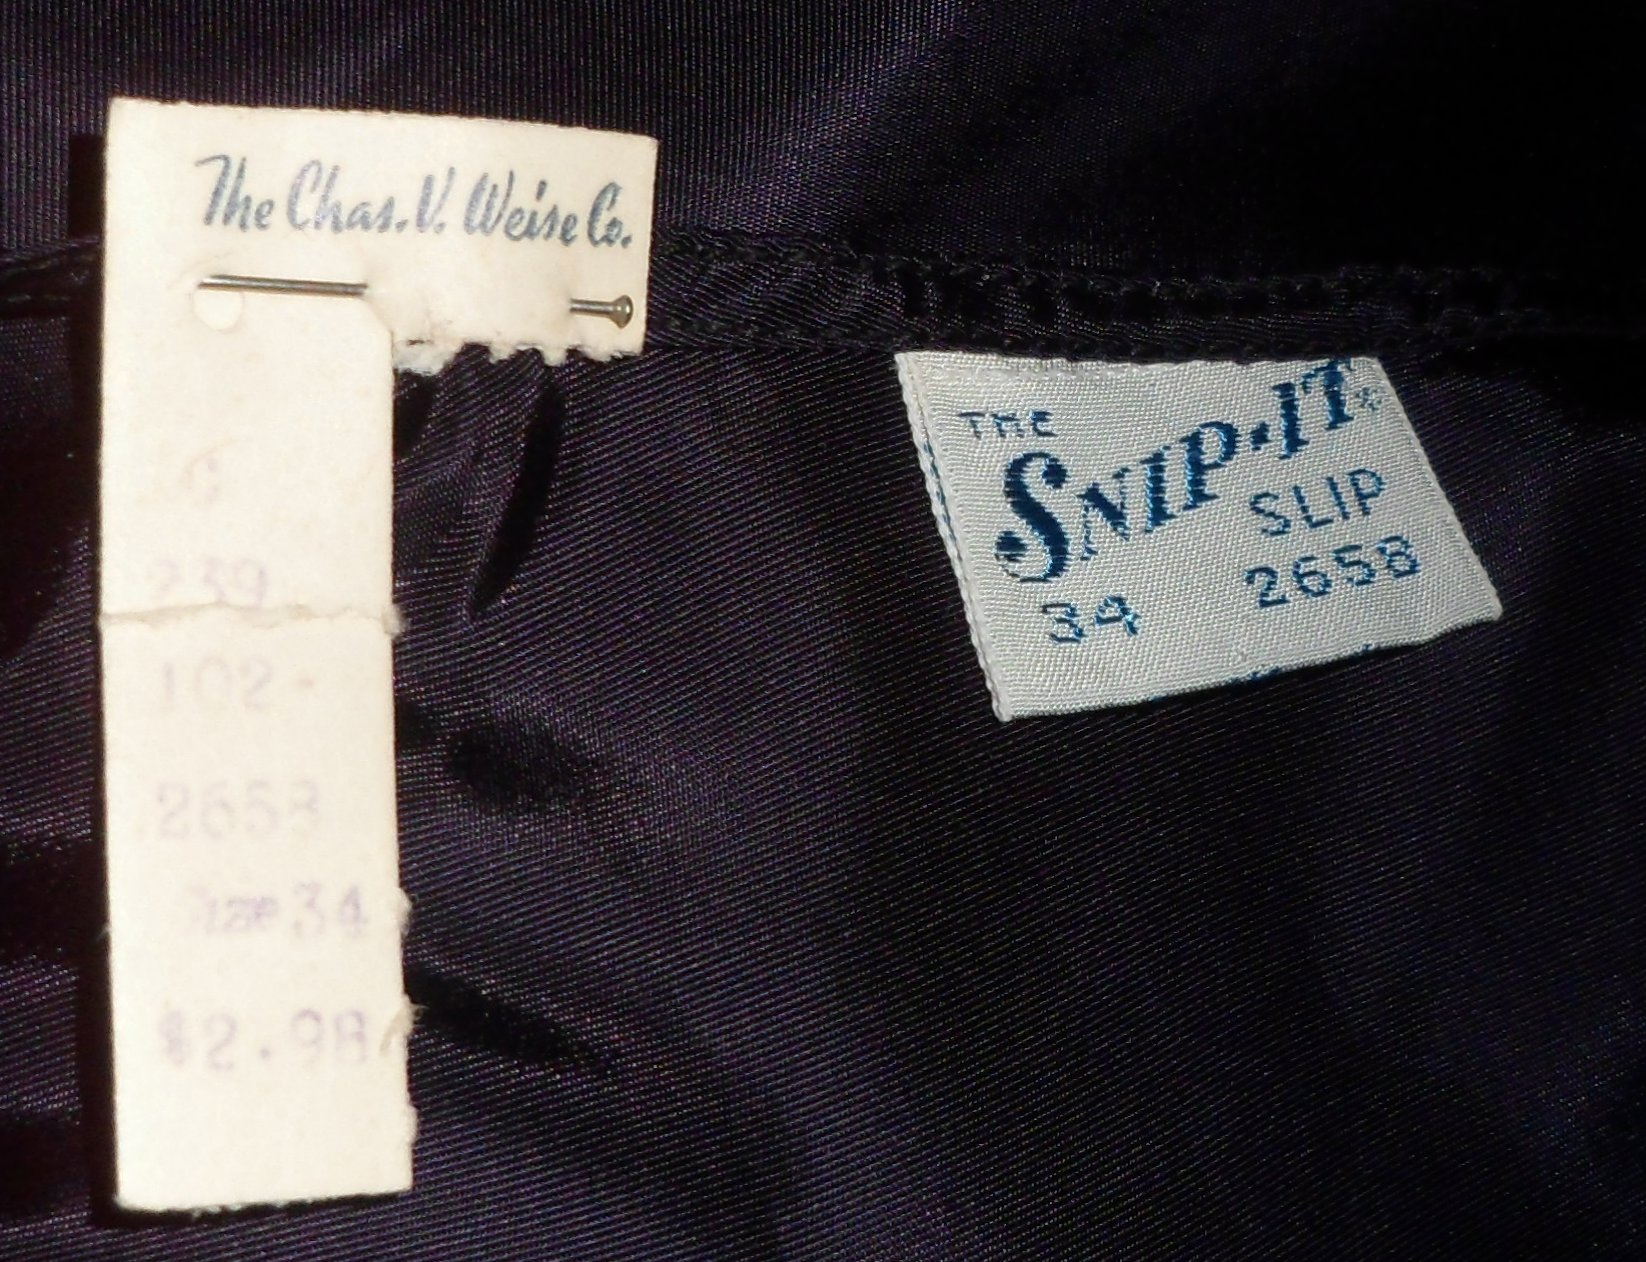 The Chas. V. Weise Co.
6
239
102-
2658
Size 34
$2.98
THE
SNIP-IT
SLIP
34 2658